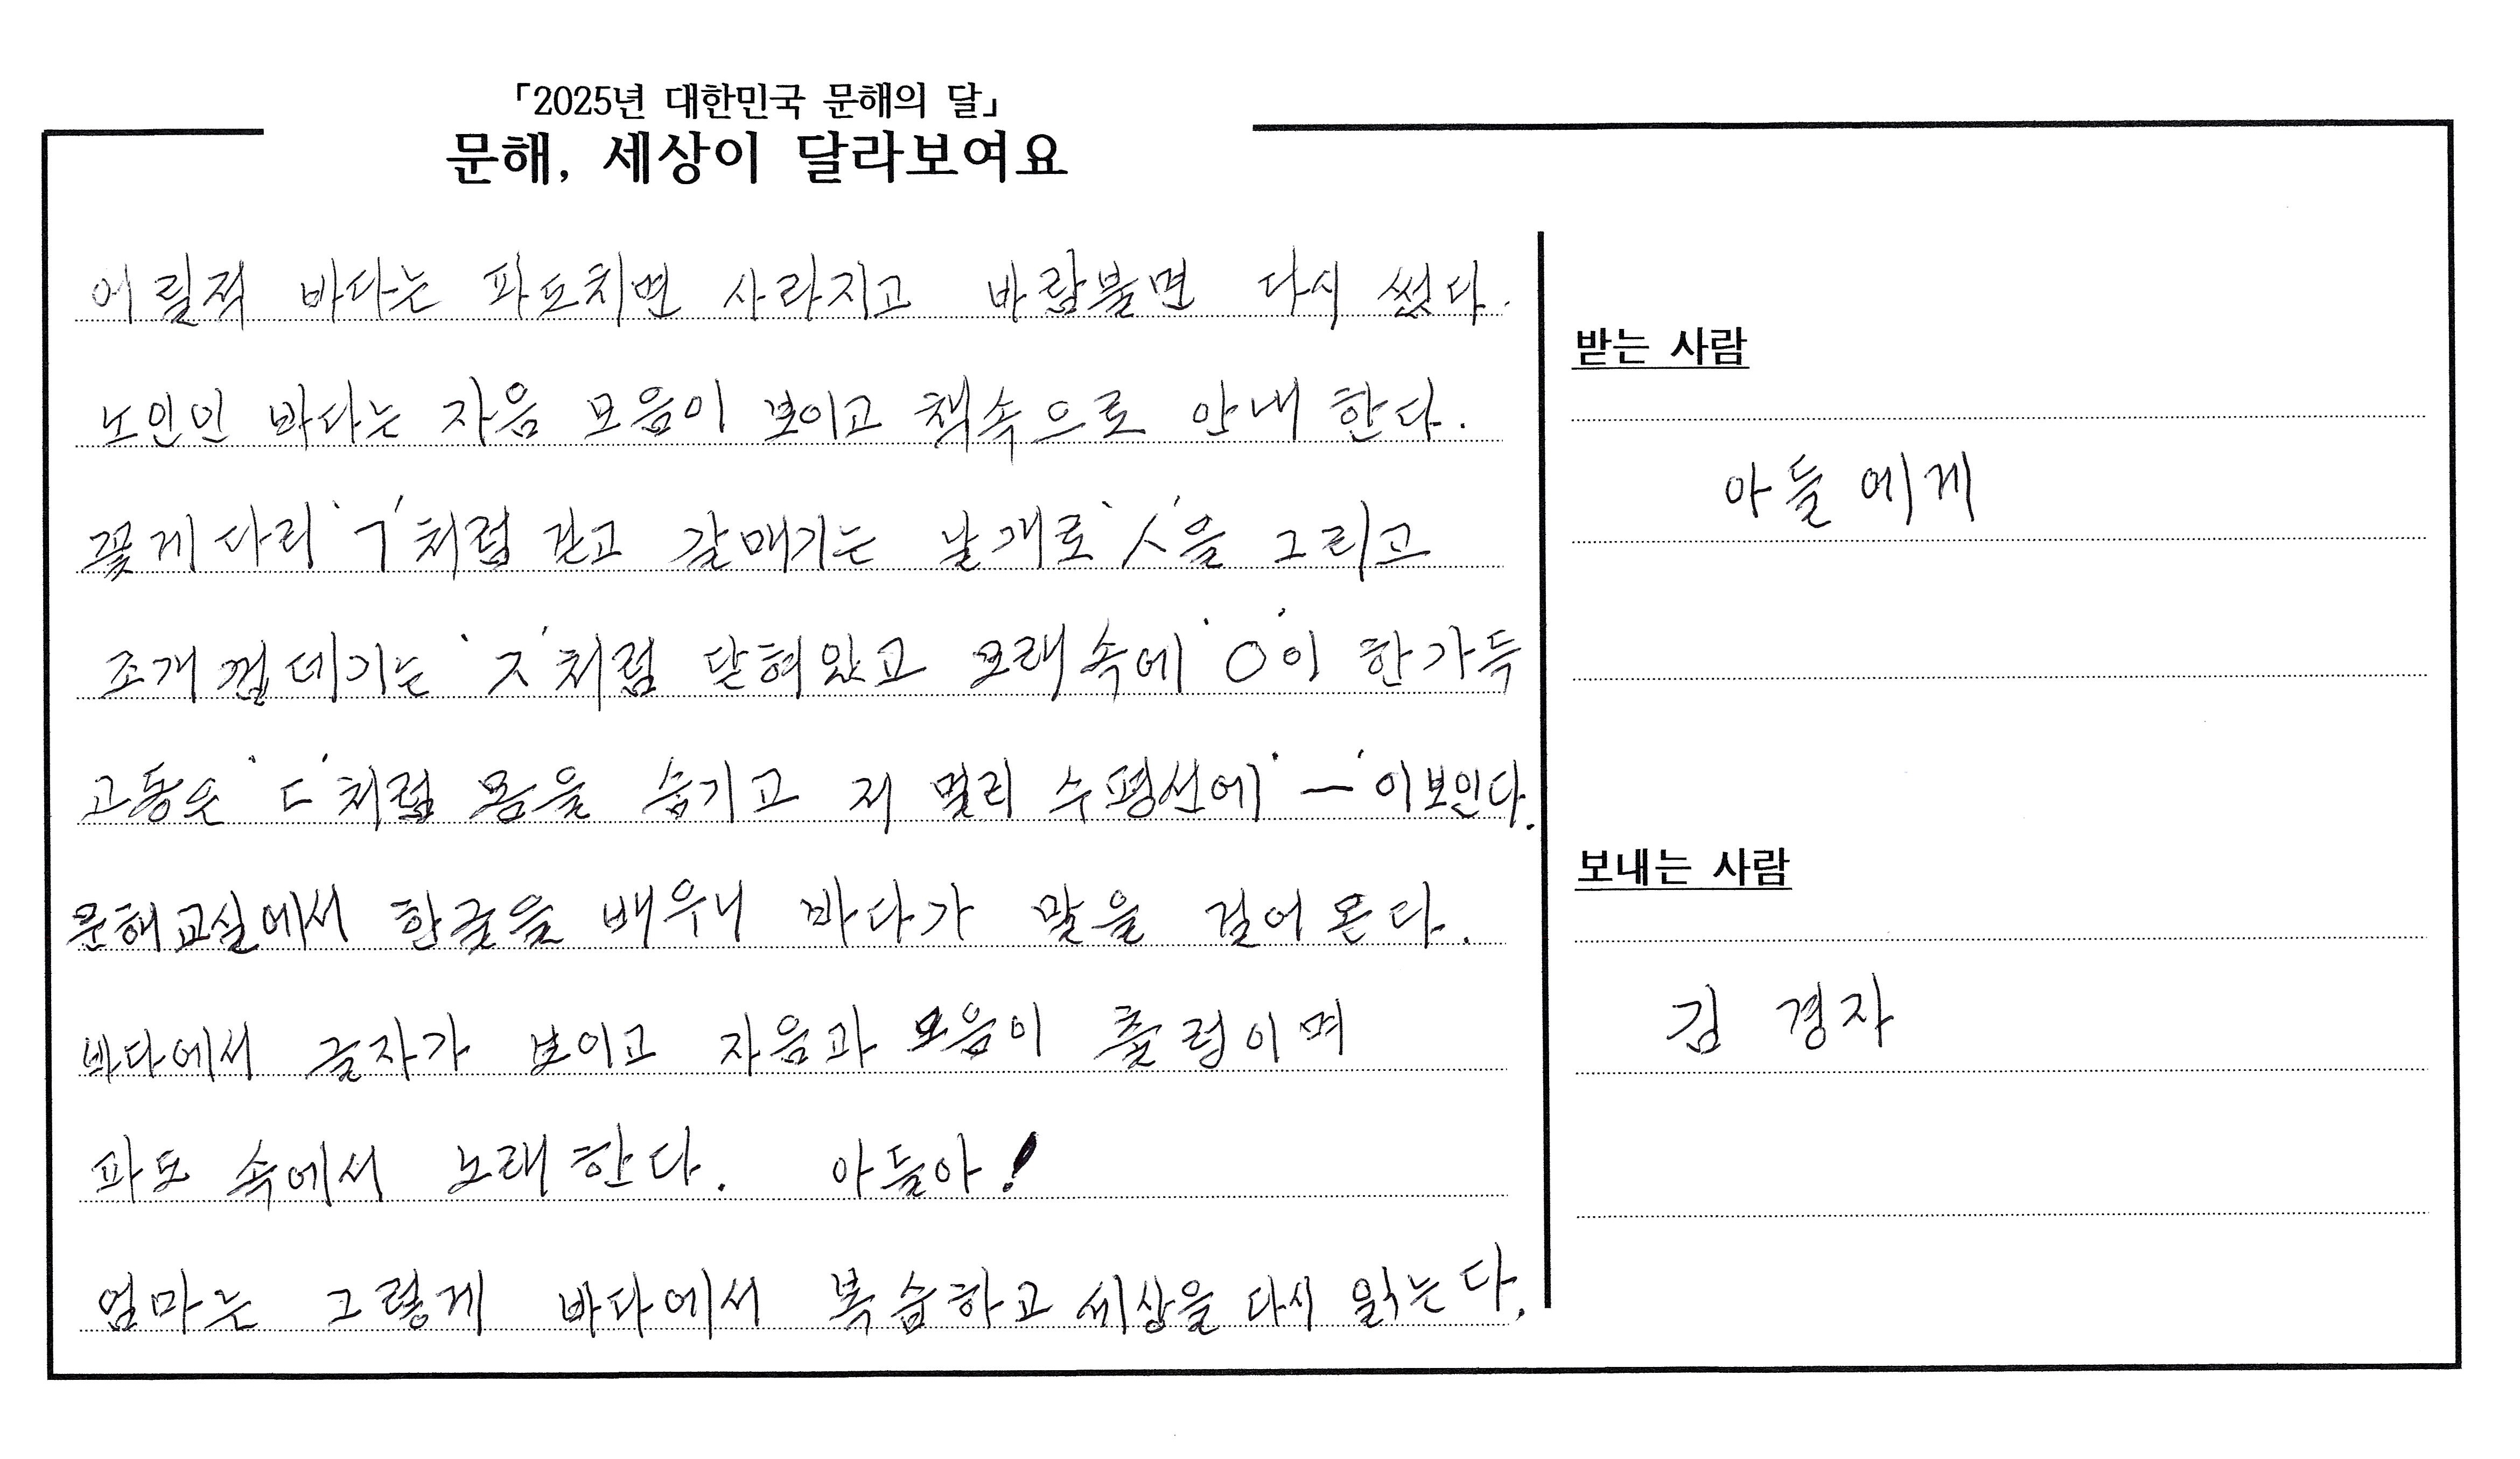 「2025년 대한민국 문해의 달」
문해, 세상이 달라보여요
어릴적 바다는 파도치면 사라지고 바람불면 다시 썼다.
노인인 바다는 자음 모음이 보이고 책속으로 안내 한다.
꽃게 다리 'ㄱ'처럼 걷고 갈매기는 날개로 'ㅅ'을 그리고
조개 껍데기는 'ㅈ'처럼 닫혀있고 모래 속에 'ㅇ'이 한가득
고동은 'ㄷ'처럼 몸을 숨기고 저 멀리 수평선에 'ㅡ'이보인다.
문해교실에서 한글을 배우니 바다가 말을 걸어 온다.
바다에서 글자가 보이고 자음과 모음이 출렁이며
파도 속에서 노래 한다. 아들아!
엄마는 그렇게 바다에서 복습하고 세상을 다시 읽는다.
받는 사람
아들 에게
보내는 사람
김 경자